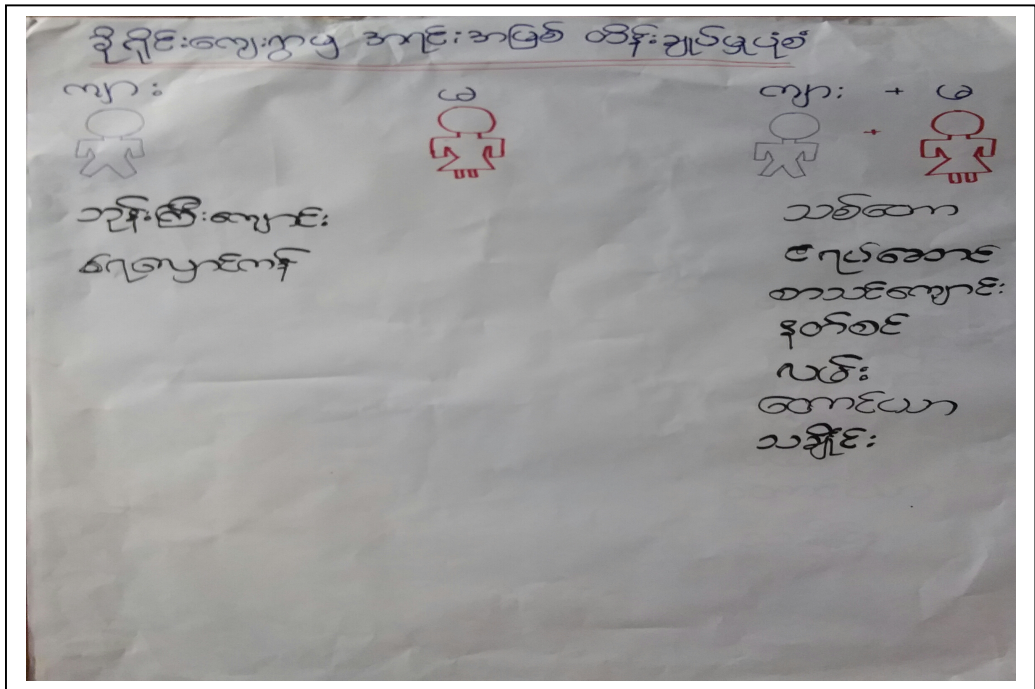 ခိုလှိုင်းကျေးရွာမှ အရင်းအမြစ် ထိန်းချုပ်မှုပုံစံ
ကျား
မ
ကျား + မ
+
ဘုန်းကြီးကျောင်း
ရေလှောင်ကန်
သစ်တော
ဇရပ်ဆောင်
စာသင်ကျောင်း
နတ်စင်
လမ်း
တောင်ယာ
သချိုင်း